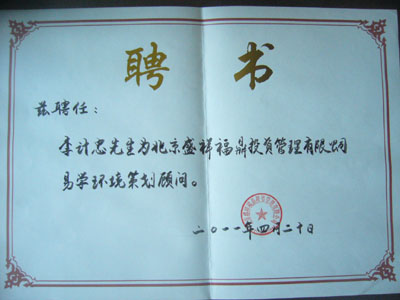 聘 书
兹聘任：
李计忠先生为北京盛祥福鼎投资管理有限公司
易学环境策划顾问。
二〇一一年四月二十日